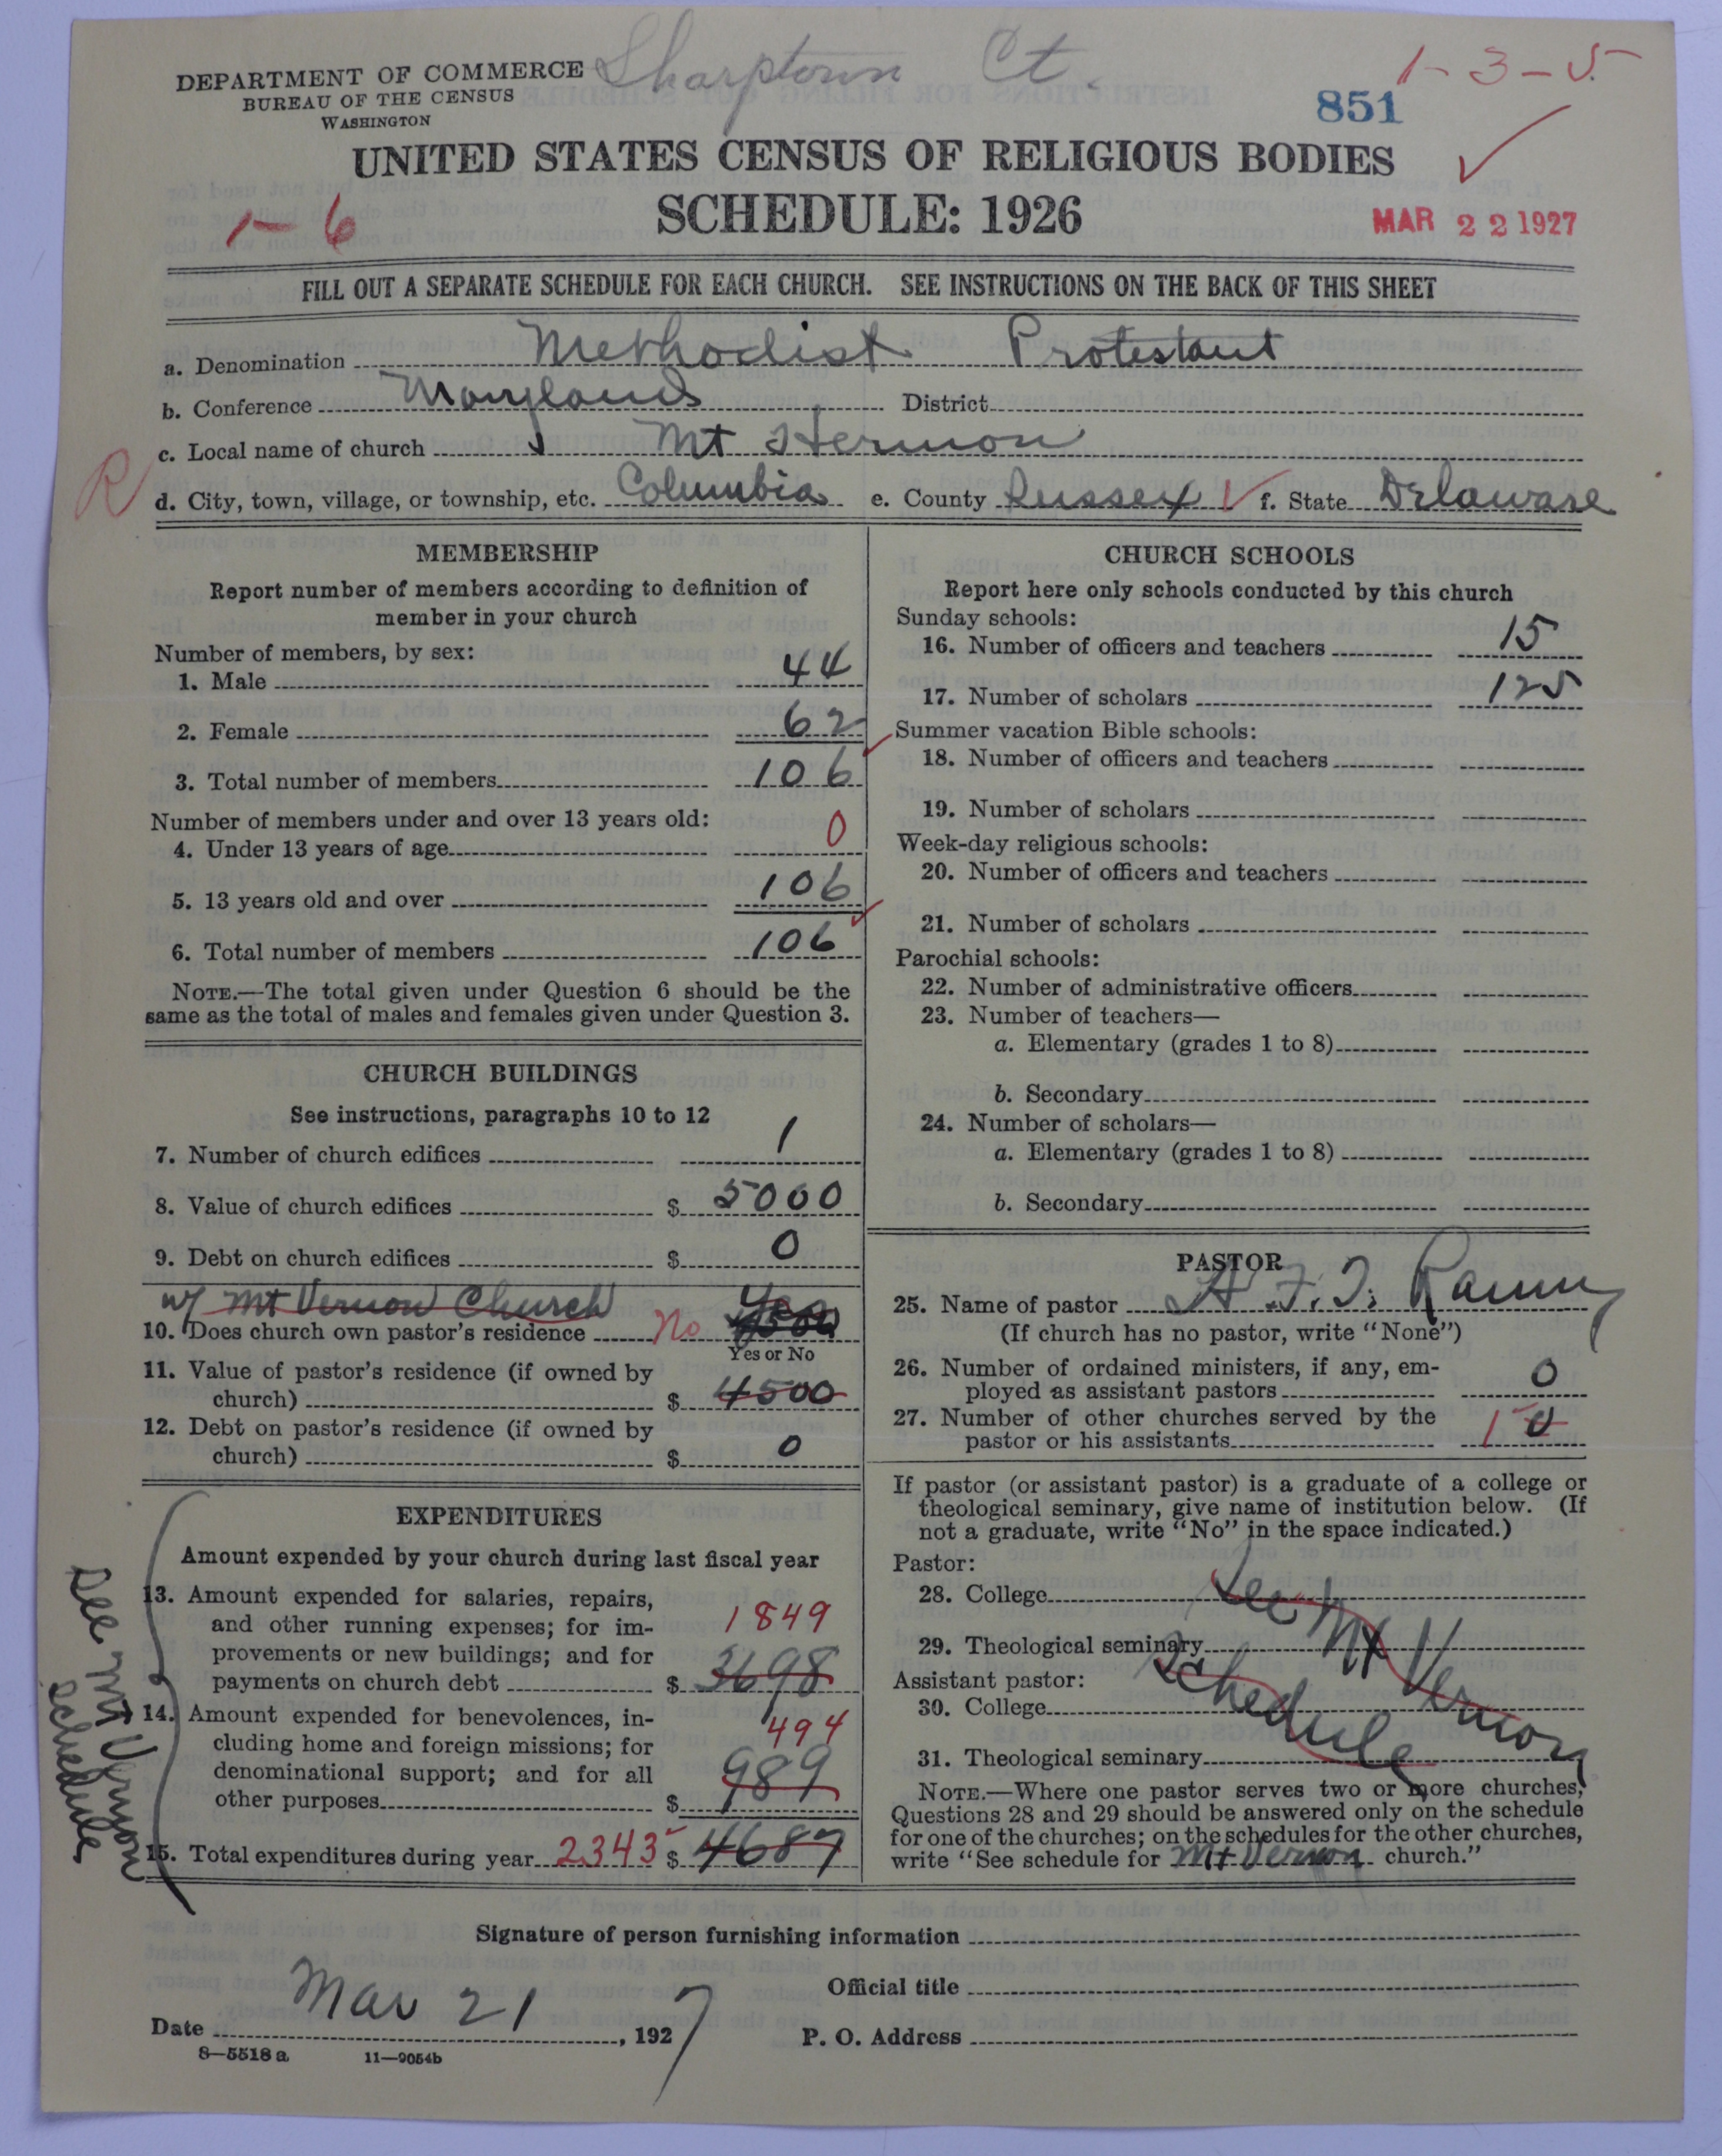 Sharptown Ct.
1-3-5
DEPARTMENT OF COMMERCE
BUREAU OF THE CENSUS
WASHINGTON
851
UNITED STATES CENSUS OF RELIGIOUS BODIES
SCHEDULE: 1926
1-6
MAR 22 1927
FILL OUT A SEPARATE SCHEDULE FOR EACH CHURCH. SEE INSTRUCTIONS ON THE BACK OF THIS SHEET
a. Denomination Methodist Protestant
b. Conference Maryland District
c. Local name of church Mt Hermon
R
d. City, town, village, or township, etc. Columbia e. County Sussex f. State Delaware
MEMBERSHIP
Report number of members according to definition of
member in your church
Number of members, by sex:
1. Male 44
2. Female 62
3. Total number of members 106
Number of members under and over 13 years old:
4. Under 13 years of age 0
5. 13 years old and over 106
6. Total number of members 106
NOTE.—The total given under Question 6 should be the
same as the total of males and females given under Question 3.
CHURCH BUILDINGS
See instructions, paragraphs 10 to 12
7. Number of church edifices 1
8. Value of church edifices $ 5000
9. Debt on church edifices $ 0
w/ Mt Vernon Church Yes
10. Does church own pastor's residence No
Yes or No
11. Value of pastor's residence (if owned by
church) $ 4500
12. Debt on pastor's residence (if owned by
church) $ 0
EXPENDITURES
Amount expended by your church during last fiscal year
13. Amount expended for salaries, repairs,
and other running expenses; for im-
provements or new buildings; and for
1849
payments on church debt $ 3698
14. Amount expended for benevolences, in-
cluding home and foreign missions; for
494
denominational support; and for all
other purposes $ 989
15. Total expenditures during year 2343 $ 4687
See Mt Vernon
schedule
CHURCH SCHOOLS
Report here only schools conducted by this church
Sunday schools:
16. Number of officers and teachers 15
17. Number of scholars 125
Summer vacation Bible schools:
18. Number of officers and teachers
19. Number of scholars
Week-day religious schools:
20. Number of officers and teachers
21. Number of scholars
Parochial schools:
22. Number of administrative officers
23. Number of teachers—
a. Elementary (grades 1 to 8)
b. Secondary
24. Number of scholars—
a. Elementary (grades 1 to 8)
b. Secondary
PASTOR
25. Name of pastor F. T.
(If church has no pastor, write "None")
26. Number of ordained ministers, if any, em-
ployed as assistant pastors 0
27. Number of other churches served by the
pastor or his assistants 1 0
If pastor (or assistant pastor) is a graduate of a college or
theological seminary, give name of institution below. (If
not a graduate, write "No" in the space indicated.)
Pastor:
28. College
29. Theological seminary
See Mt Vernon
Schedule
Assistant pastor:
30. College
31. Theological seminary
NOTE.—Where one pastor serves two or more churches,
Questions 28 and 29 should be answered only on the schedule
for one of the churches; on the schedules for the other churches,
write "See schedule for Mt Vernon church."
Signature of person furnishing information
Official title
Date Mar 21, 1927
P. O. Address
8—5518 a 11—9054b